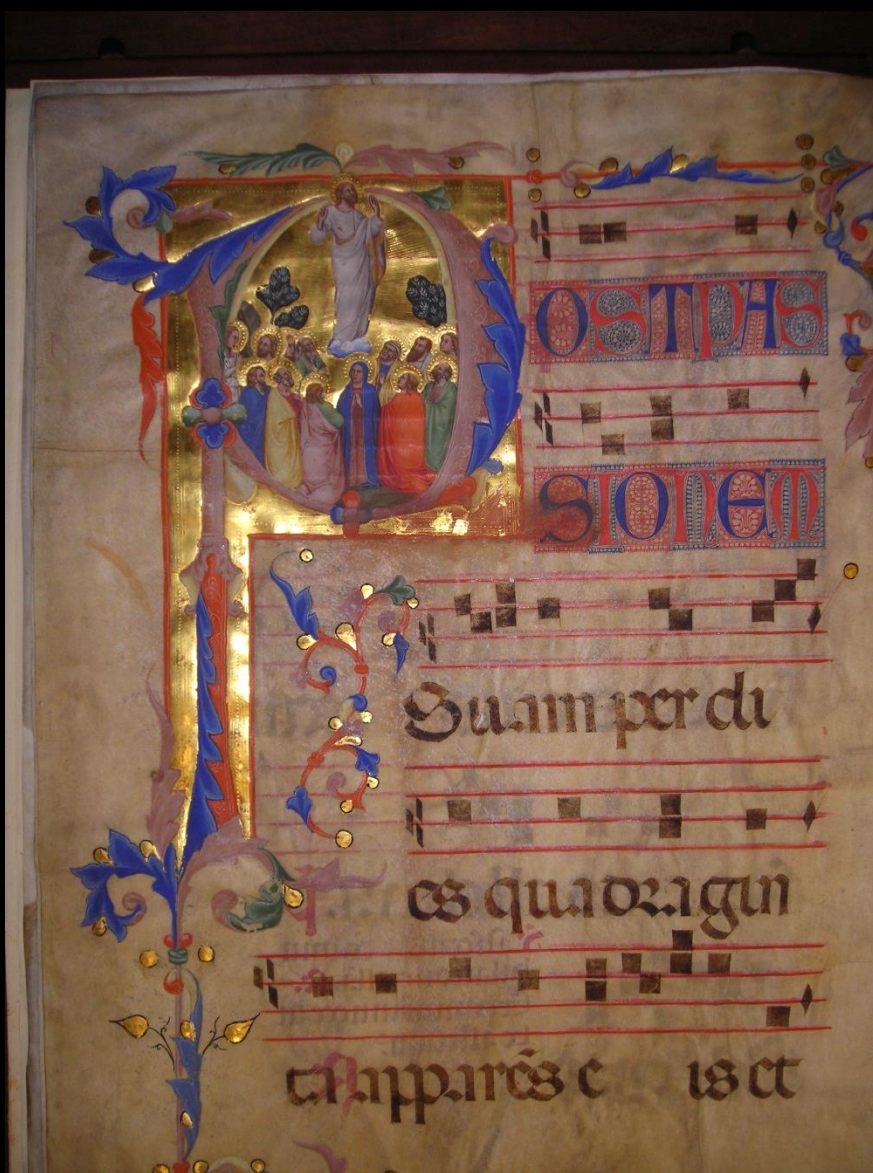 POST PAS
SIONEM
Suam per di
es quadragin
ta apparẽs e is et